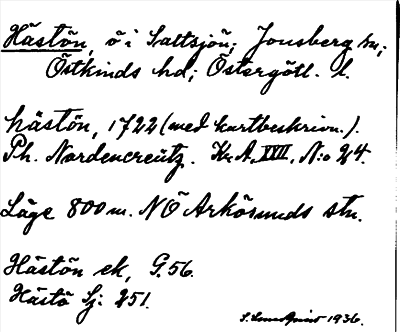 Hästön, ö i Saltsjön; Jonsberg sn;
Östkinds hd; Östergötl. l.
hästön, 1722 (med kartbeskrivn.).
Ph. Nordencreütz. Kr. A. XVII, N:o 24.
Läge 800 m. NÖ Arkösunds stn.
Hästön ek, G. 56.
Hästö Sj: 251.
1936.